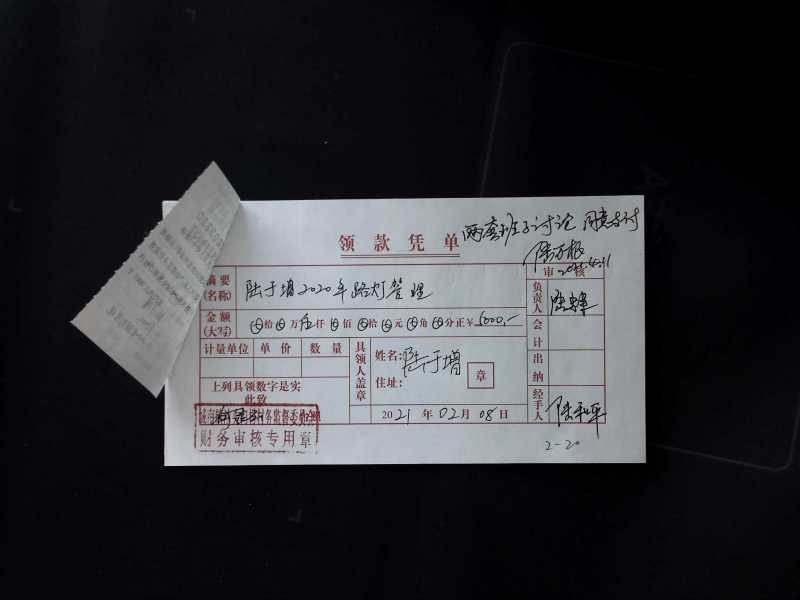 两套班子讨论 同意支付
领款凭单
2021.4.11
摘要(名称) 陆于增2020年路灯管理
审核
负责人
金额(大写) 拾 万 伍仟 佰 拾 元 角 分正 ¥ 5000,-
会计
计量单位 单价 数量
具领人盖章
姓名: 陆于增
住址:
章
出纳
上列具领数字是实
此致
经手人 陆和平
2021年02月08日
村务监督委员会
财务审核专用章
2-20